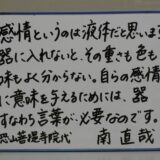 感情というのは液体だと思います
器に入れないと、その重さも色も
味もよく分からない。自らの感情
に意味を与えるためには、器
すなわち言葉が、必要なのです。
恐山菩提寺院代 南 直哉